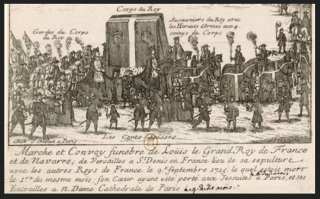 Corps du Roy
Gardes du Corps
du Roy
Aumoniers du Roy avec
les Herauts d'Armes aux 4
coings du Corps
Les Cent Suisses
Marche et Convoy funebre de Louis le Grand Roy de France
et de Navarre, de Versailles a St. Denis en France lieu de sa sepulture
avec les autres Roys de France le 9e. septembre 1715, le quel estoit mort
le 1er. du mesme mois, son Cœur ayant esté porté aux Jesuites a Paris, et ses
Entrailles a N. Dame Cathedrale de Paris